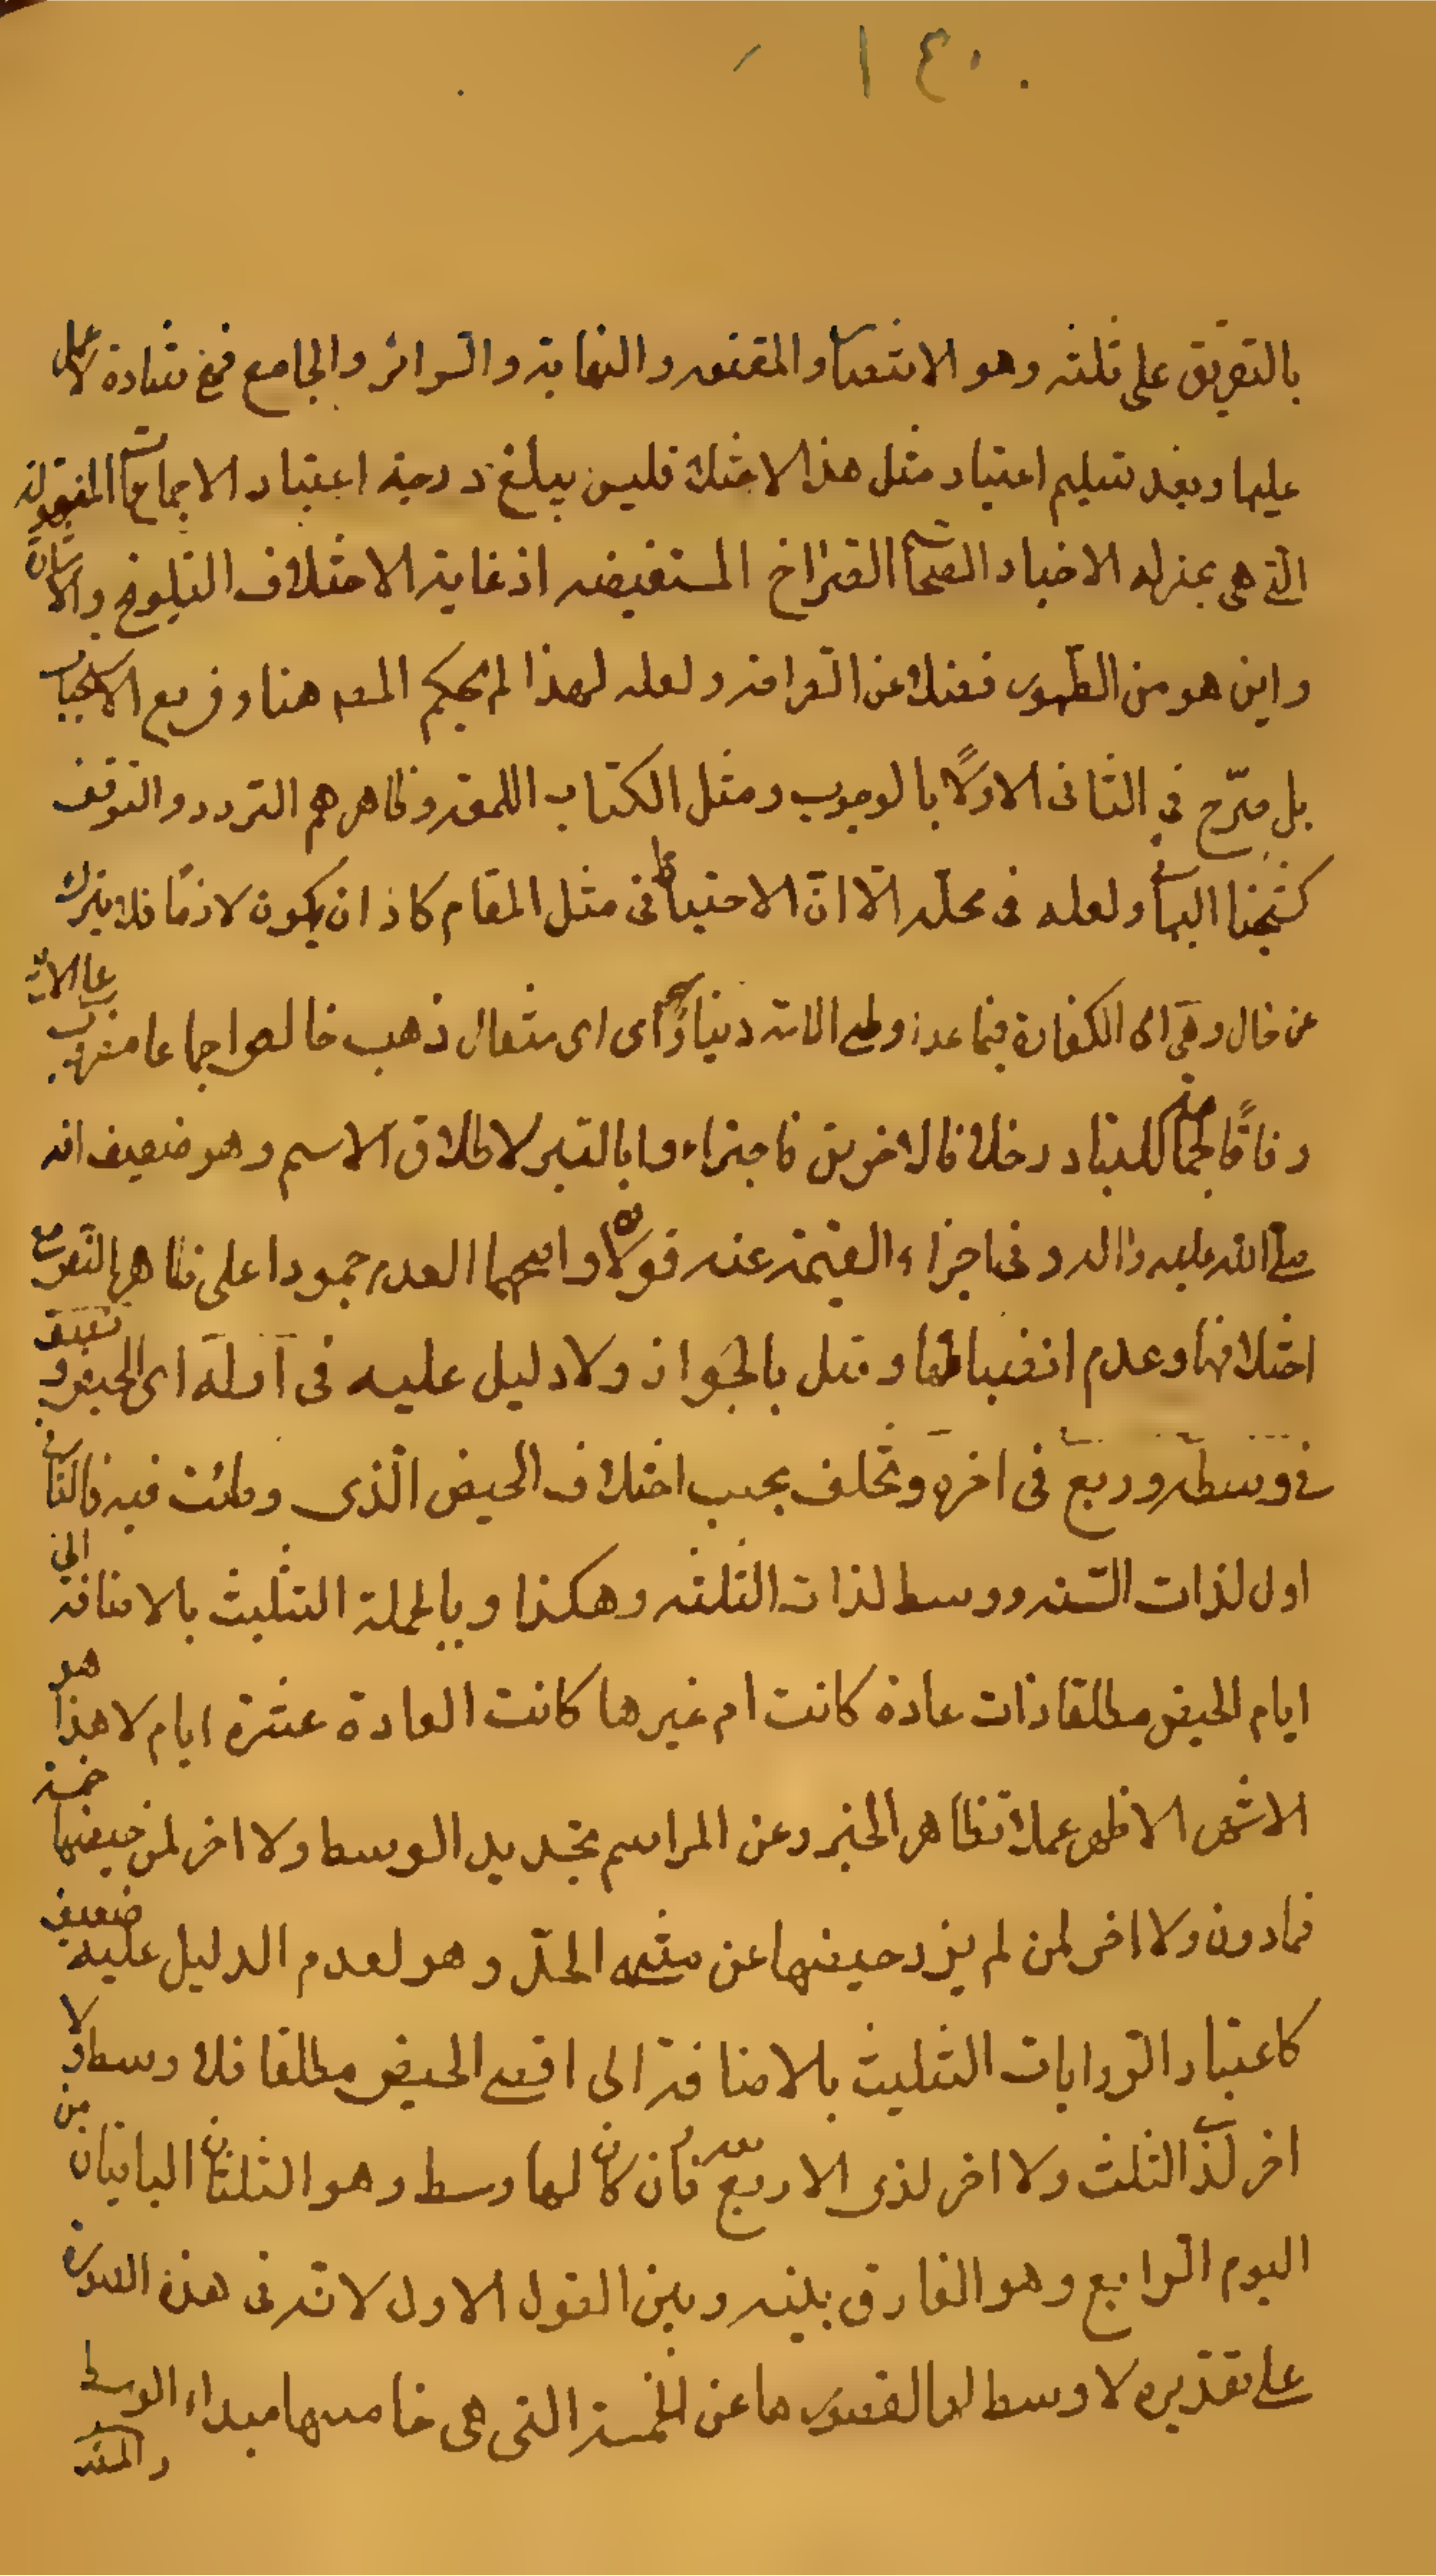 ١٤٠
بالتفريق على ثلثه وهو الانتصا والمقنعه والنهاية والسرائر والجامع فمع شهادة لا عمل
عليها وبعد تسليم اعتبار مثل هذا الاختلاف فليس يبلغ درجة اعتبار الاجماعات المنقولة
التي هي بمنزله الاخبار الصحا الصراح المستفيضه اذ غاية الاختلاف التلويح والاشارة
واين هو من الظهور فضلا عن الصرافه ولعله لهذا لم يحكم المصه هنا وفي مع الاستحباب
بل صرّح في الثاني الاولاً بالوجوب ومثل الكتاب اللمعه وظاهرهم التردد والتوقف
كشيخنا البها ولعله في محله الا انّ الاحتياط في مثل المقام كاد ان يكون لازمًا فلا يترك
على حال وهي اى الكفارة فيما عدا وطى الامة دينار اى مثقال ذهب خالص اجماعا مضروب على الا
وفاقًا لجما للتبادر خلافا لاخرين فاجتزاءوا بالتبر لاطلاق الاسم وهو ضعيف انه
صلى الله عليه واله وفي اجزاء القيمة عنه قولان واصحهما العدم جمودا على ظاهر النصوص مع
اختلافها وعدم انضباطها وقيل بالجواز ولا دليل عليه في اوله اى الحيض ونصف
في وسطه وربع في اخره وتخلف بحسب اختلاف الحيض الذى وطئت فيه فالثانى
اول لذات الستة ووسط لذات الثلثه وهكذا وبالجملة التثليث بالاضافة الى
ايام الحيض مطلقا ذات عادة كانت ام غيرها كانت العادة عشرة ايام لا هذا هو
الاشهر الاظهر عملا بظاهر الخبر وعن المراسم تحديد الوسط ولا اخر لمن حيضها خمسة
فمادون ولا اخر لمن لم يزد حيضها عن مثبه الحدّ وهو لعدم الدليل عليه ضعيف
كاعتبار الروايات التثليث بالاضافة الى اقصى الحيض مطلقا فلا وسط ولا
اخر لذات الثلث ولا اخر لذى الاربع نعم فان كان لها وسط وهو الثلثان الباقيان من
اليوم الرابع وهو الفارق بينه وبين القول الاول لانّه فى هذه الصورة
على تقديره لا وسط لها لقصورها عن الخمسة التي هي خامسها مبداء الوسط